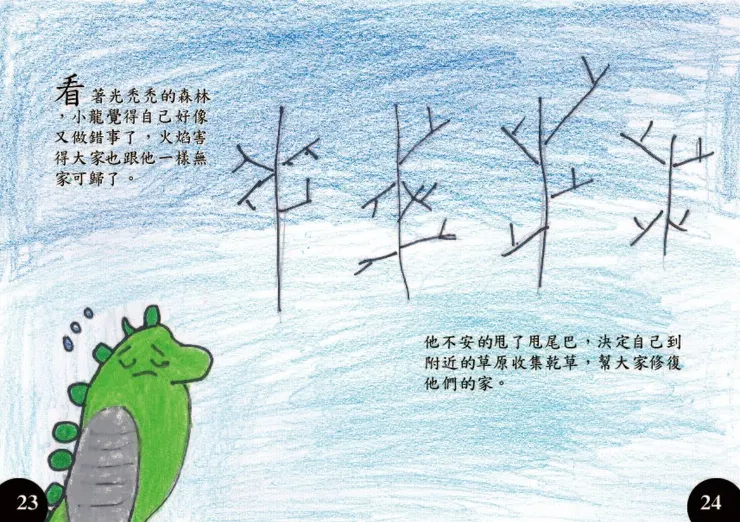 看著光禿禿的森林
，小龍覺得自己好像
又做錯事了，火焰害
得大家也跟他一樣無
家可歸了。
他不安的甩了甩尾巴，決定自己到
附近的草原收集乾草，幫大家修復
他們的家。
23
24